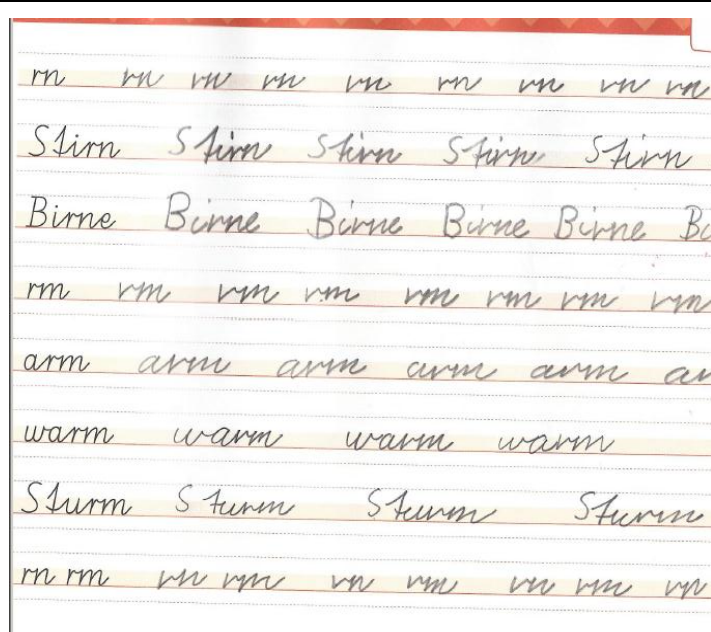 rn rn rn rn rn rn rn rn rn
Stirn Stirn Stirn Stirn Stirn
Birne Birne Birne Birne Birne
rm rm rm rm rm rm rm rm
arm arm arm arm arm
warm warm warm warm
Sturm Sturm Sturm Sturm
rn rm rn rm rn rm rn rm rn